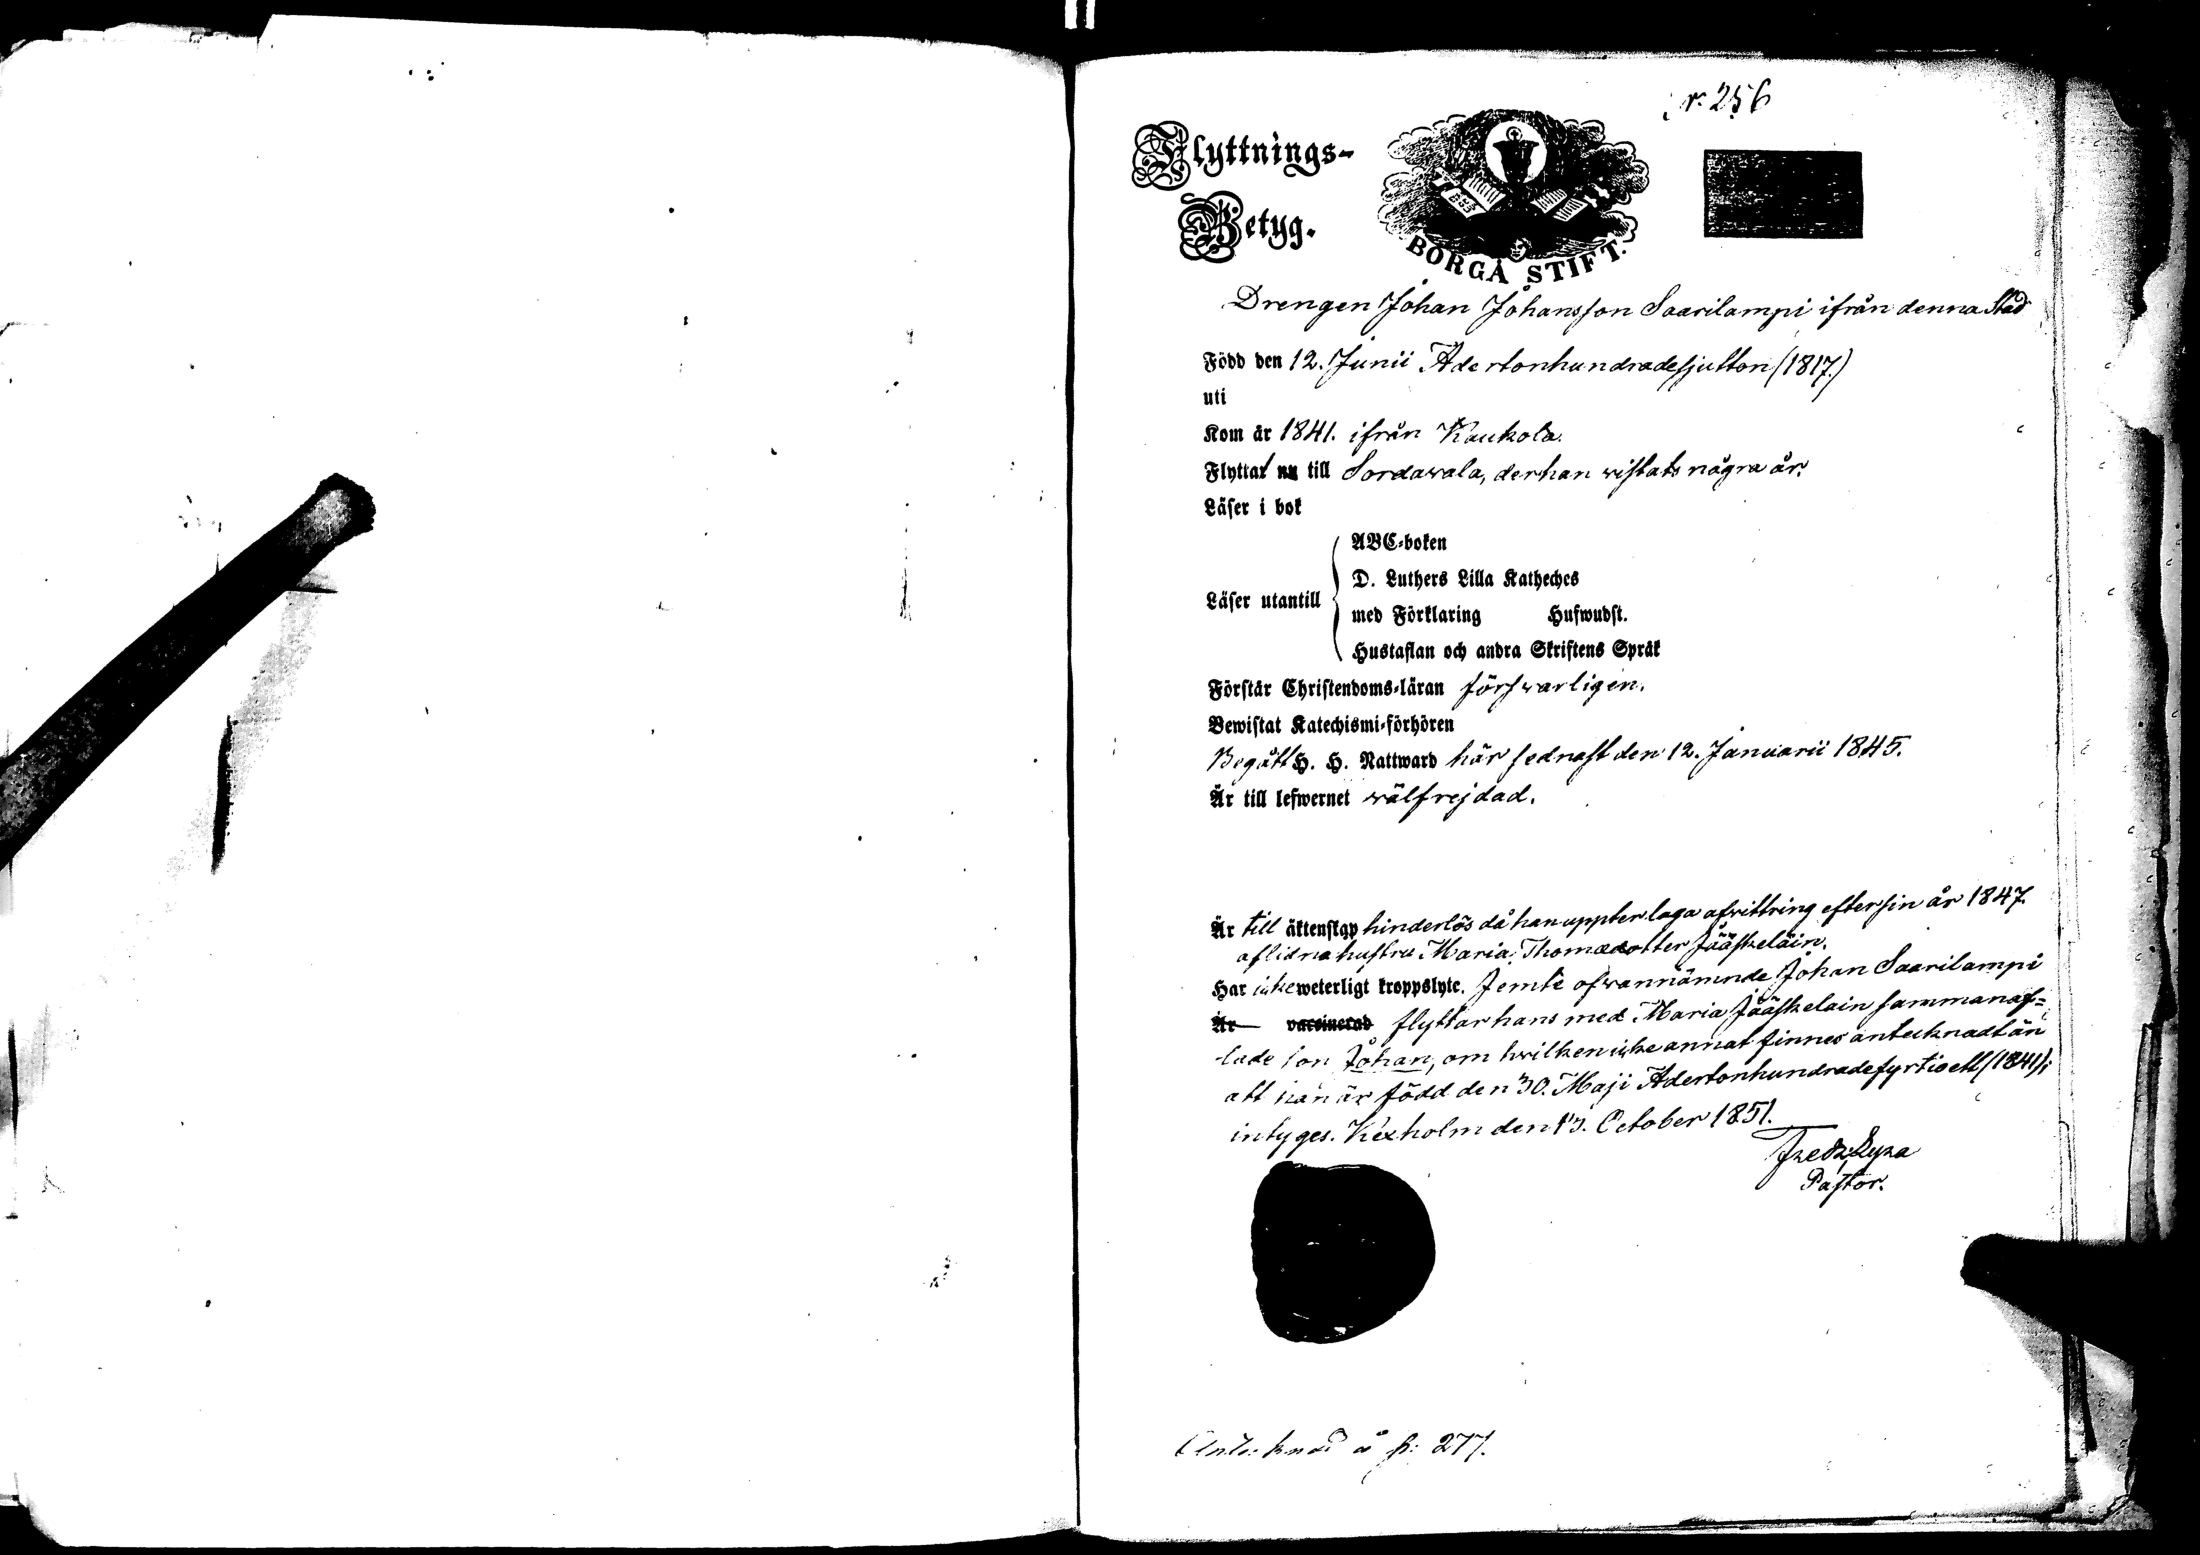 Nr. 256
Flyttnings-
Betyg.
BORGÅ STIFT.
Drengen Johan Johansson Saarilampi ifrån denna Stad
Född den 12. Junii Adertonhundradesjutton (1817.)
uti
Kom år 1841. ifrån Kaukola.
Flyttat nu till Sordawala, der han wistats några år.
Läser i bok
ABC-boken
D. Luthers Lilla Katheches
Läser utantill
med Förklaring Hufwudst.
Hustaflan och andra Skriftens Språk
Förstår Christendoms-läran förswarligen.
Bewistat Katechismi-förhören
Begått H. H. Nattward här sednast den 12. Januarii 1845.
Är till lefwernet wälfrejdad.
Är till äktenskap hinderlös då han uppter laga afwittring efter sin år 1847.
aflidna hustru Maria Thomædotter Jääskeläin.
Har icke weterligt kroppslyte. Jemte ofwannämnde Johan Saarilampi
Är vaccinerad flyttar hans med Maria Jääskelain sammanaf=
lade son Johan, om hwilken icke annat finnes antecknadt än
att han är född den 30. Maji Adertonhundradefyrtioett (1841);
intyges. Kexholm den 13. October 1851.
Pastor.
Antecknad å p: 277.